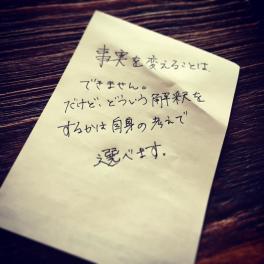 事実を変えることは
できません。
だけど、どういう解釈を
するかは自身の考えで
選べます.